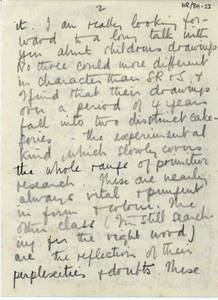 2
WR/BH-23
it. I am really looking for-
ward to a long talk with
you about childrens drawings
No three could more different
in character than SR & J. &
I find that their drawings
over a period of 4 years
fall into two distinct cate-
gories - the experimental
kind, which slowly covers
the whole range of primitive
research. These are nearly
always vital & pungent
in form & colour. The
other class (I'm still search-
ing for the right word)
are the reflection of their
perplexities & doubts. These